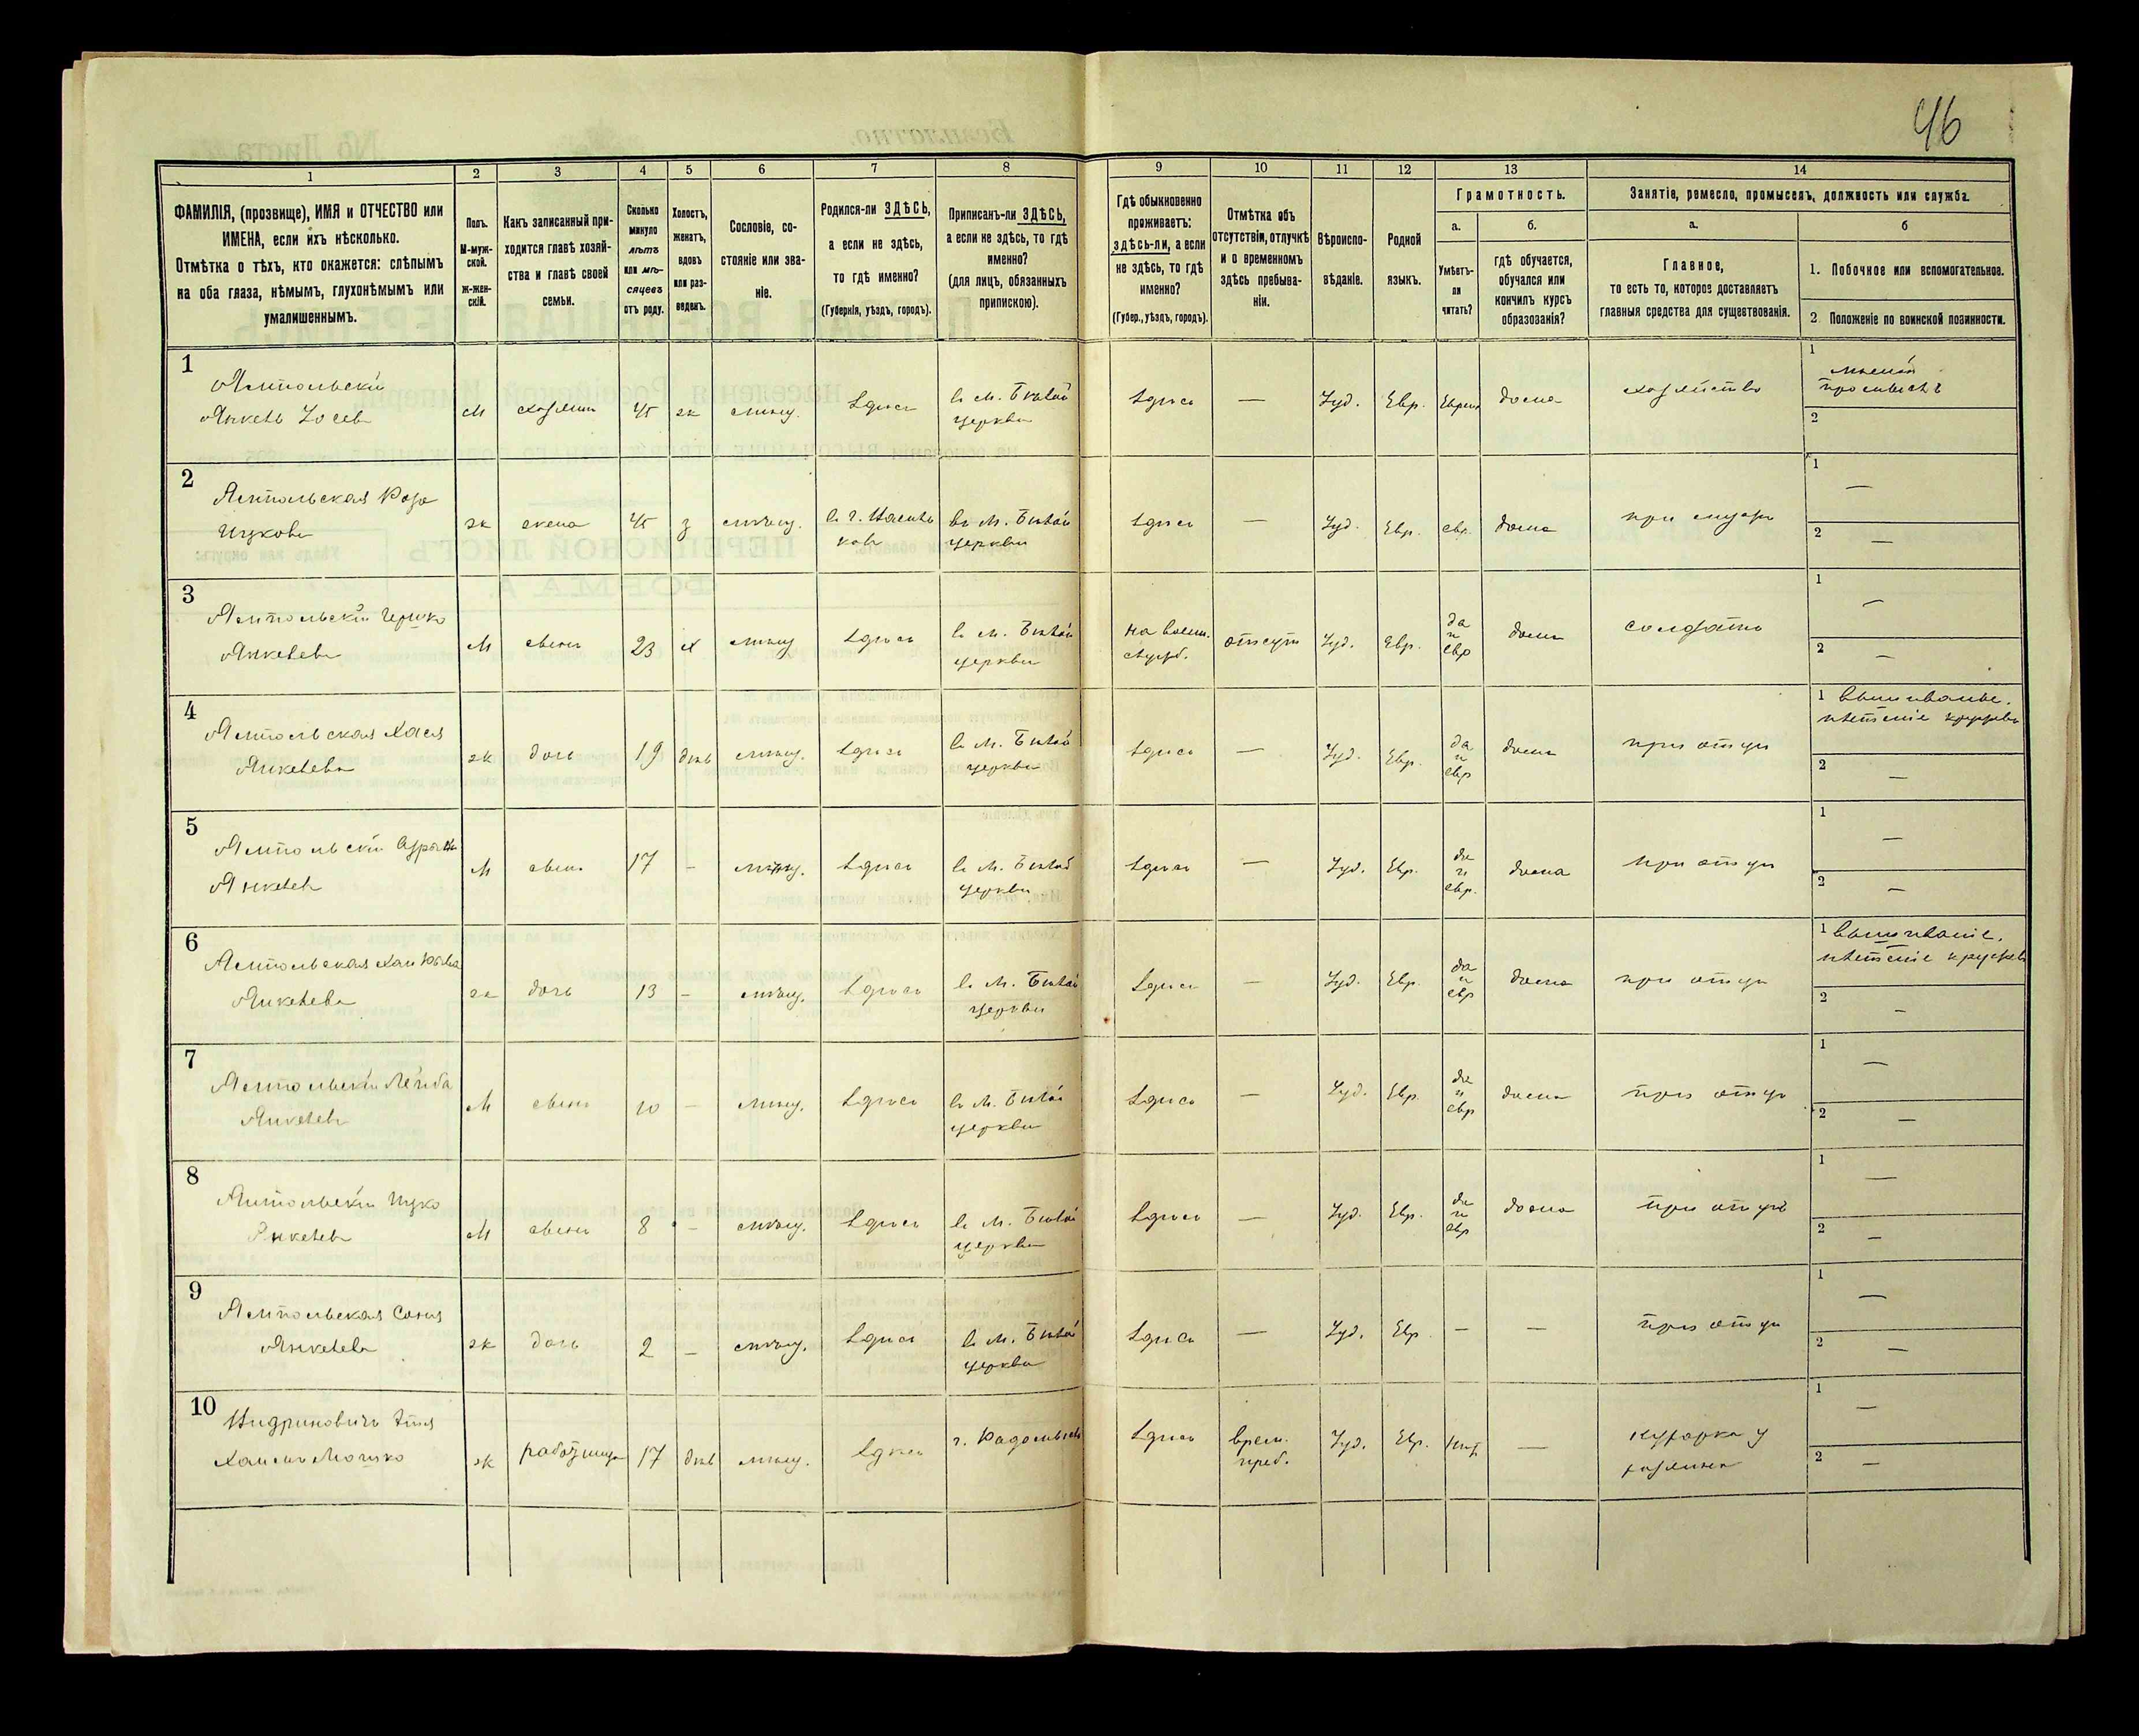 46
1 2 3 4 5 6 7 8 9 10 11 12 13 14
ФАМИЛІЯ, (прозвище), ИМЯ и ОТЧЕСТВО или
ИМЕНА, если ихъ нѣсколько.
Отмѣтка о тѣхъ, кто окажется: слѣпымъ
на оба глаза, нѣмымъ, глухонѣмымъ или
умалишеннымъ.
Полъ.
М-муж-
ской.
Ж-жен-
скій.
Какъ записанный при-
ходится главѣ хозяй-
ства и главѣ своей
семьи.
Сколько
минуло
лѣтъ
или мѣ-
сяцевъ
отъ роду.
Холостъ,
женатъ,
вдовъ
или раз-
веденъ.
Сословіе, со-
стояніе или зва-
ніе.
Родился-ли ЗДѢСЬ,
а если не здѣсь,
то гдѣ именно?
(Губернія, уѣздъ, городъ).
Приписанъ-ли ЗДѢСЬ,
а если не здѣсь, то гдѣ
именно?
(для лицъ, обязанныхъ
припискою).
Гдѣ обыкновенно
проживаетъ:
здѣсь-ли, а если
не здѣсь, то гдѣ
именно?
(Губер., уѣздъ, городъ).
Отмѣтка объ
отсутствіи, отлучкѣ
и о временномъ
здѣсь пребыва-
ніи.
Вѣроиспо-
вѣданіе.
Родной
языкъ.
Грамотность.
а.
Умѣетъ-
ли
читать?
б.
гдѣ обучается,
обучался или
кончилъ курсъ
образованія?
Занятіе, ремесло, промыселъ, должность или служба.
а.
Главное,
то есть то, которое доставляетъ
главныя средства для существованія.
б
1. Побочное или вспомогательное.
2. Положеніе по воинской повинности.
1
Ямпольскій
Янкель Іосев
М хозяинъ 45 ж мѣщ. здѣсь
в м. Бѣлой
церкви
здѣсь — Іуд. Евр. дома хозяйство
1
2
2
Ямпольская
Ицкова
ж жена 45 з мѣщ.
в м. Бѣлой
церкви
здѣсь — Іуд. Евр. евр. дома при мужѣ
1 —
2 —
3
Ямпольскій Гершко
Янкелев
М сынъ 23 х мѣщ здѣсь
в м. Бѣлой
церкви
на воен.
служб.
отсут Іуд. Евр.
да
и
евр
дома солдатъ
1 —
2 —
4
Ямпольская Хася
Янкелева
ж дочь 19 дѣв мѣщ. здѣсь
в м. Бѣлой
церкви
здѣсь — Іуд. Евр.
да
и
евр
дома при отцѣ
1 вышиванье,
плетеніе кружев
2 —
5
Ямпольскій
Янкелев
М сынъ 17 — мѣщ. здѣсь
в м. Бѣлой
церкви
здѣсь — Іуд. Евр.
да
и
евр.
дома при отцѣ
1 —
2 —
6
Ямпольская
Янкелева
ж дочь 13 — мѣщ. здѣсь
в м. Бѣлой
церкви
здѣсь — Іуд. Евр.
да
и
евр
дома при отцѣ
1 вышиваніе,
плетеніе кружев
2 —
7
Ямпольскій Лейба
Янкелев
М сынъ 10 — мѣщ. здѣсь
в м. Бѣлой
церкви
здѣсь — Іуд. Евр.
да
и
евр
дома при отцѣ
1 —
2 —
8
Ямпольскій Ицко
Янкелев
М сынъ 8 — мѣщ. здѣсь
в м. Бѣлой
церкви
здѣсь — Іуд. Евр.
да
и
евр
дома при отцѣ
1 —
2 —
9
Ямпольская Соня
Янкелева
ж дочь 2 — мѣщ. здѣсь
в м. Бѣлой
церкви
здѣсь — Іуд. Евр. — — при отцѣ
1 —
2 —
10
Мошко
ж работница 17 дѣв мѣщ. здѣсь
г. Радомысль
здѣсь
врем.
преб.
Іуд. Евр. нѣт — кухарка у
хозяина
1 —
2 —